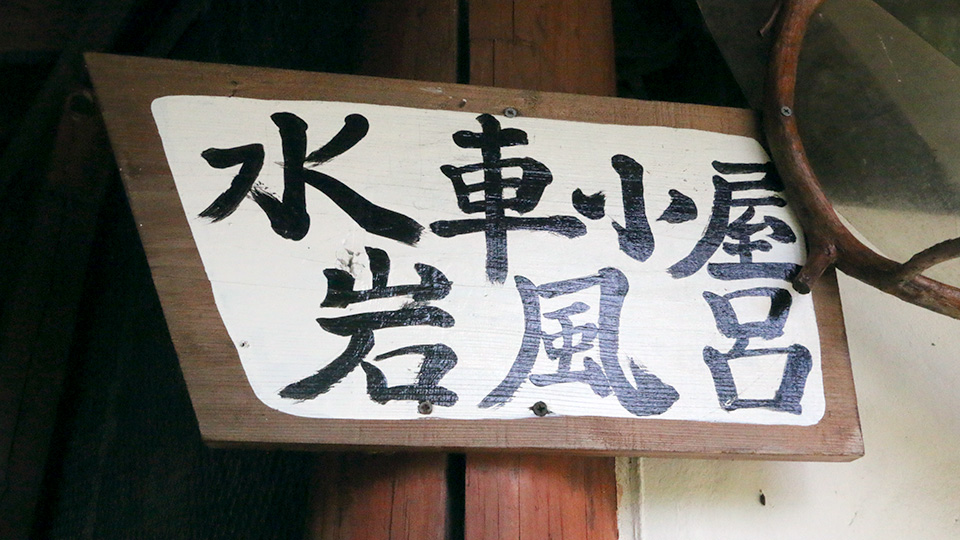 水車小屋
岩風呂